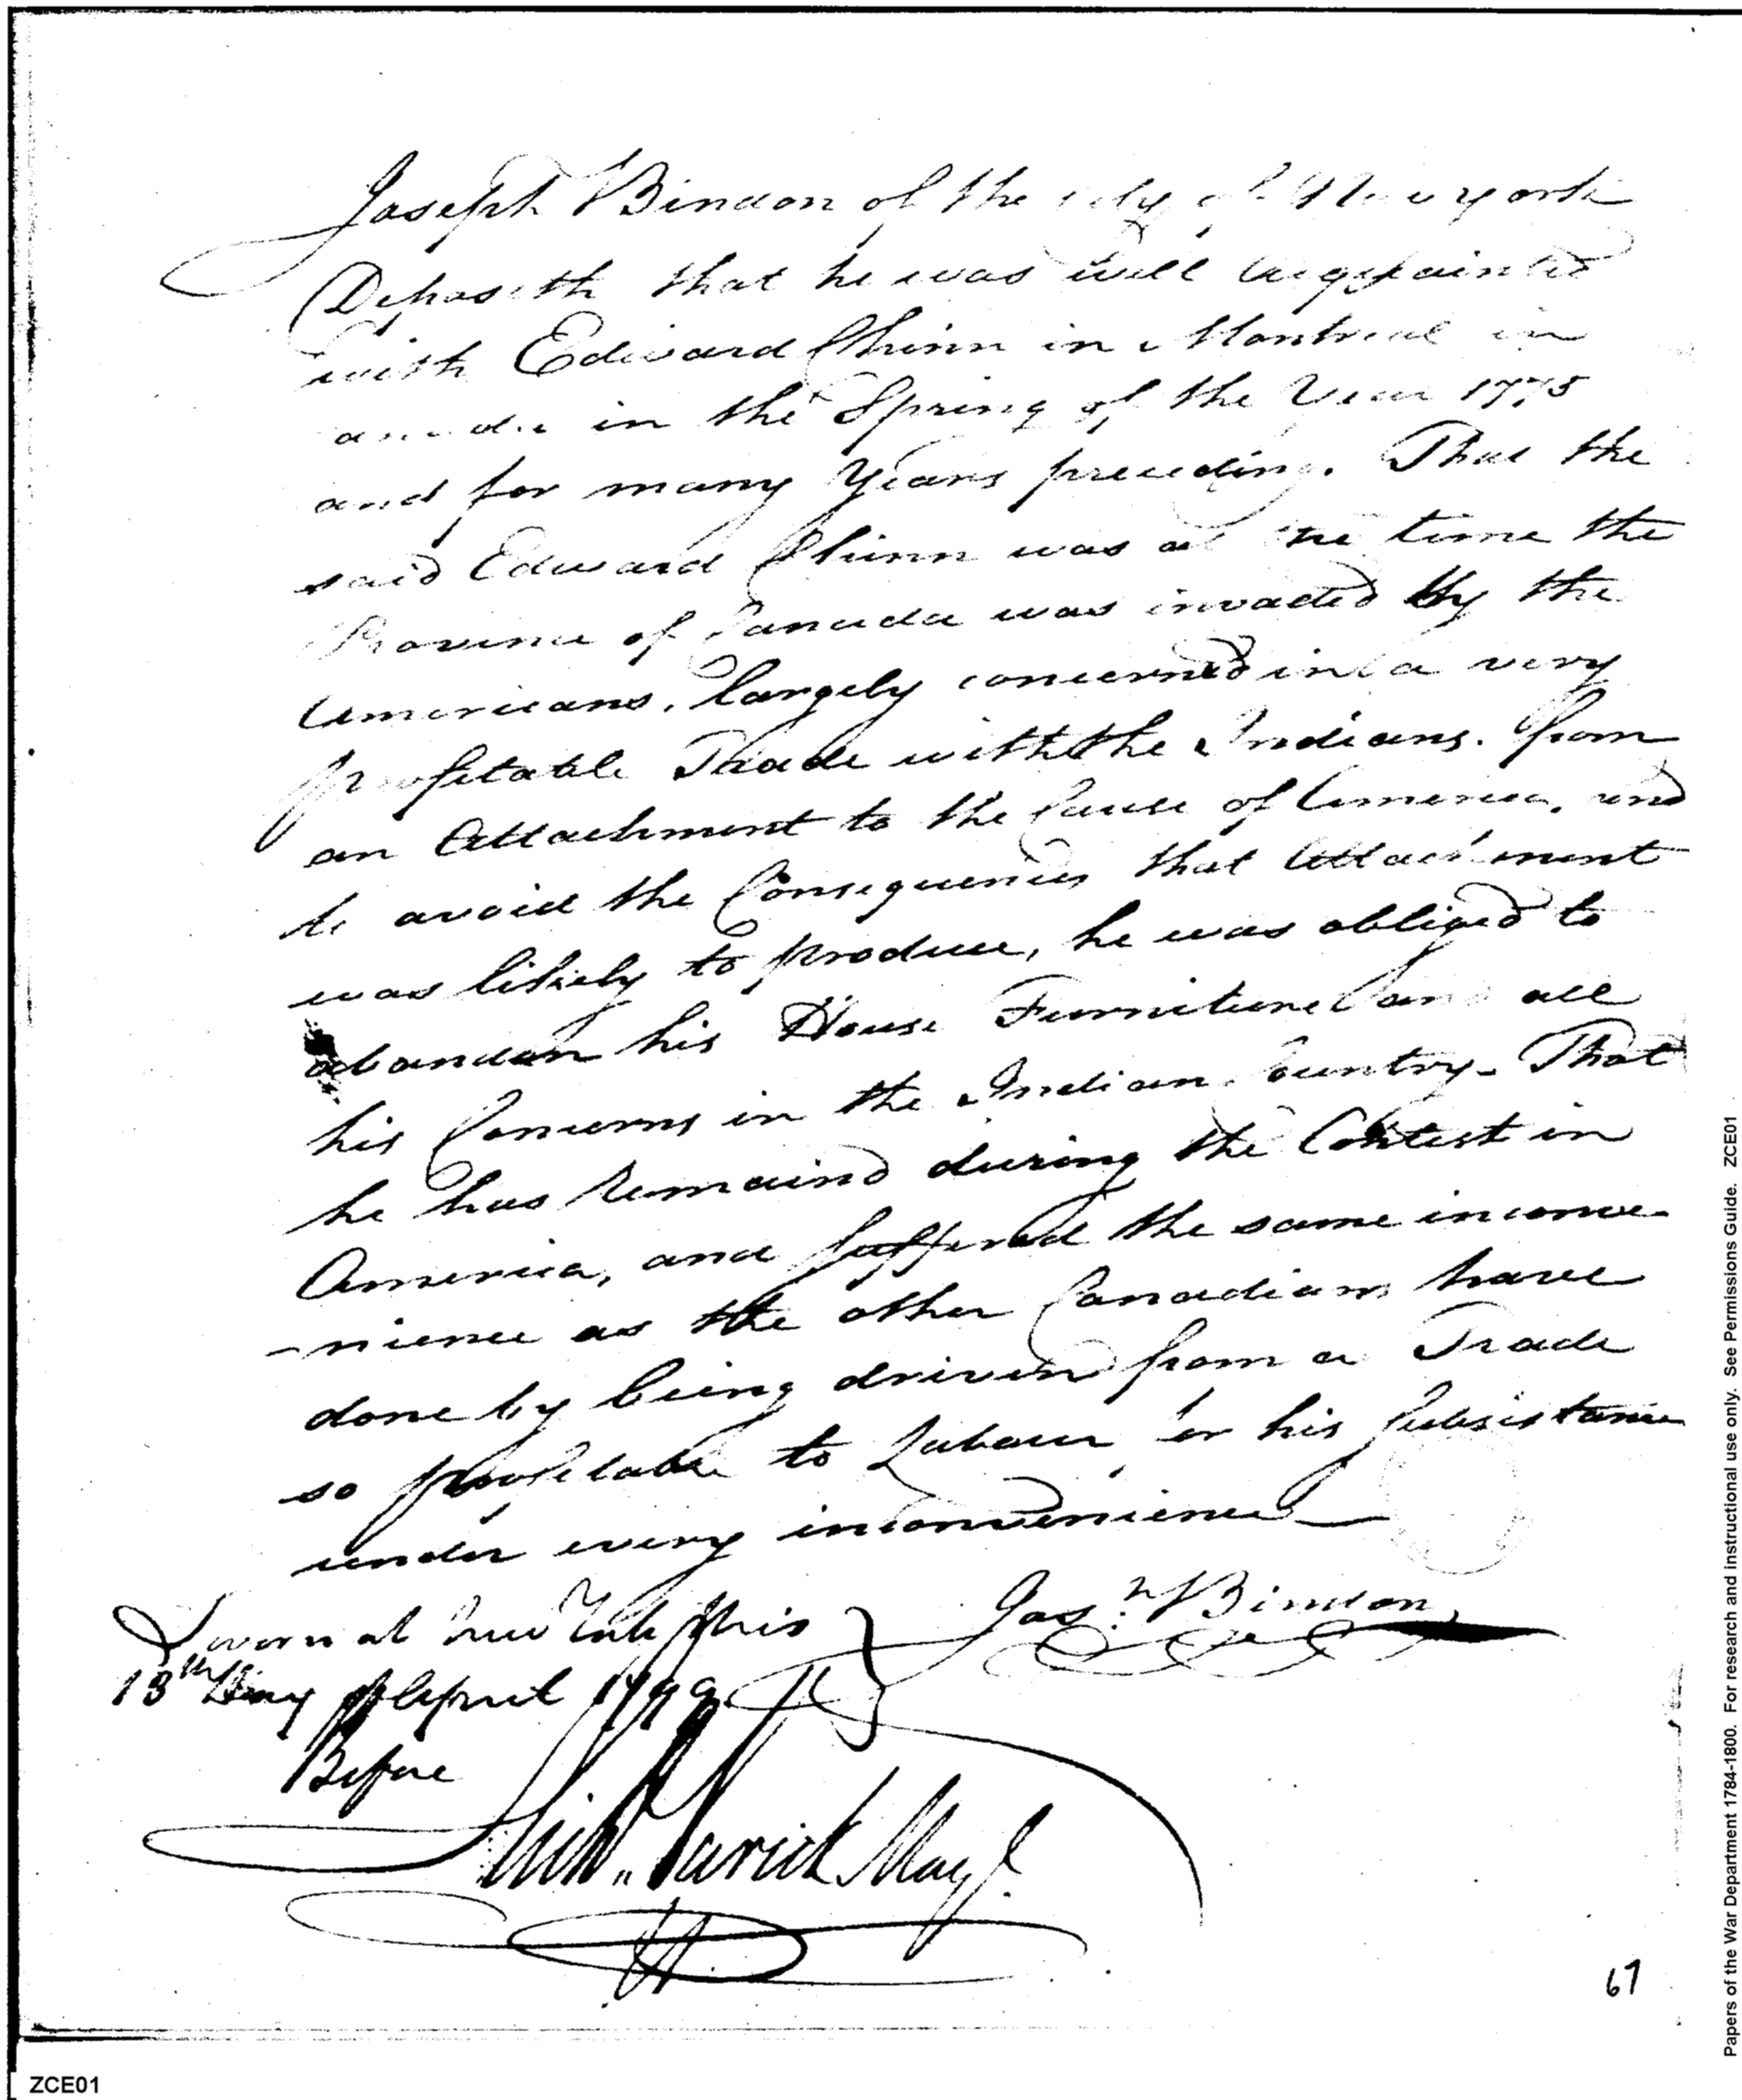 Joseph Bindon of the City of New york
Deposeth that he was well acquainted
with Edward Chinn in Montreal in
Canada in the Spring of the Year 1775
and for many Years preceding. That the
said Edward Chinn was at the time the
Province of Canada was invaded by the
Americans, largely concerned in a very
profitable Trade with the Indians. from
an Attachment to the Cause of America, and
to avoid the Consequences that Attachment
was likely to produce, he was obliged to
abandon his House Furniture and all
his Concerns in the Indian Country - That
he has remaind during the Contest in
America, and suffered the same inconve-
-nience as the other Canadians have
done by being driven from a Trade
so profitable to Labour for his Subsistance
under every inconvenience
Josh. Bindon
Sworn at New York this
13th Day of April 1799
Before
Richd. Varick Mayr.
67
ZCE01
Papers of the War Department 1784-1800. For research and instructional use only. See Permissions Guide. ZCE01